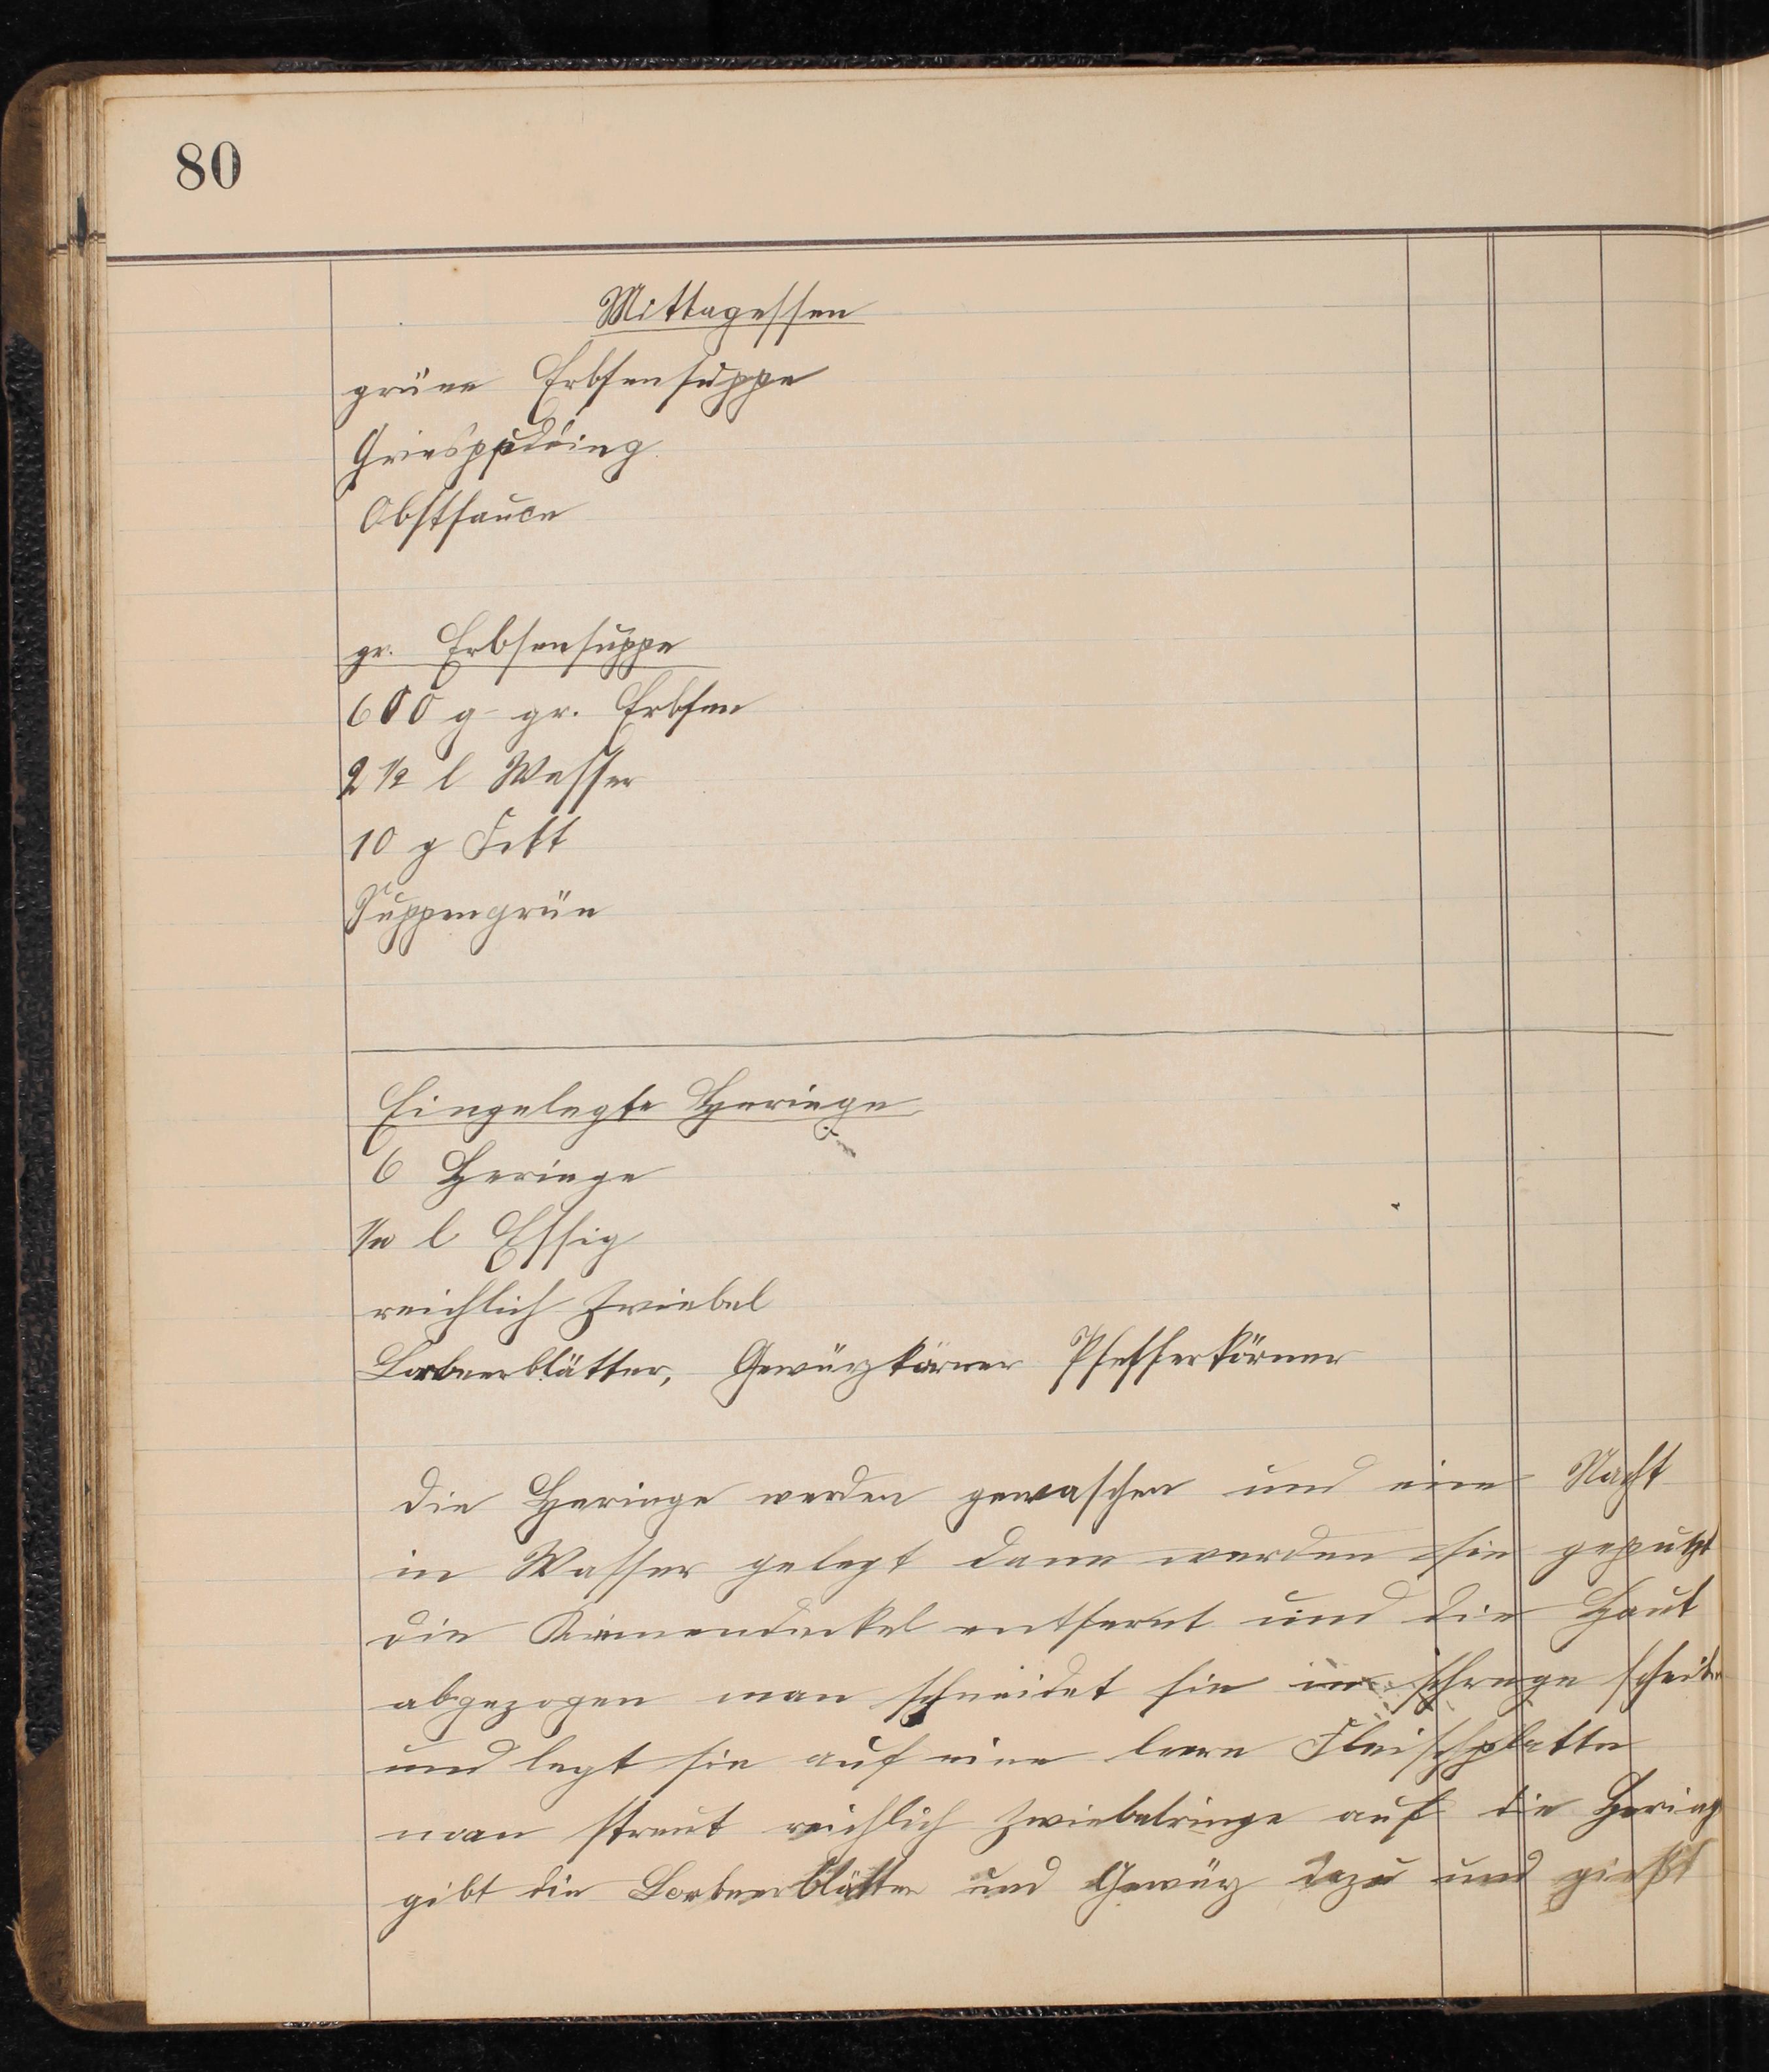 80
Mittagessen
grüne Erbsensuppe
Griespudding
Obstsauce
gr. Erbsensuppe
600 g gr. Erbsen
2 1/2 l Wasser
10 g Fett
Suppengrün
Eingelegte Heringe
6 Heringe
l Essig
reichlich Zwiebel
Lorbeerblätter, Gewürzkörner Pfefferkörner
die Heringe werden gewaschen und eine Nacht
in Wasser gelegt dann werden sie geputzt
die Kiemendeckel entfernt und die Haut
abgezogen man schneidet sie in schrege
und legt sie auf eine leere Fleischplatte
man streut reichlich Zwiebelringe auf die Hering
gibt die Lorbeerblätter und Gewürz dazu und gießt